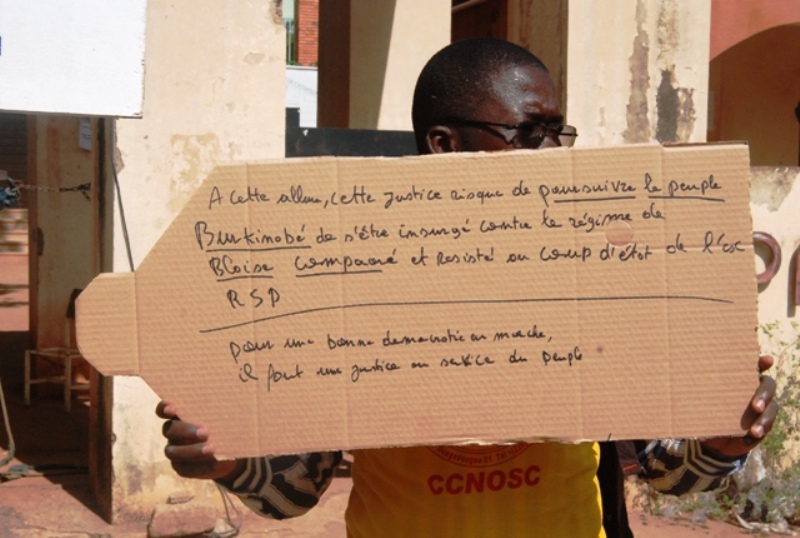 A cette allure, cette justice risque de poursuivre le peuple
Burkinabé de s'être insurgé contre le régime de
Blaise Compaoré et resisté au coup d'état de l'ex
RSP
pour une bonne democratie en marche,
il faut une justice au service du peuple
CCNOSC